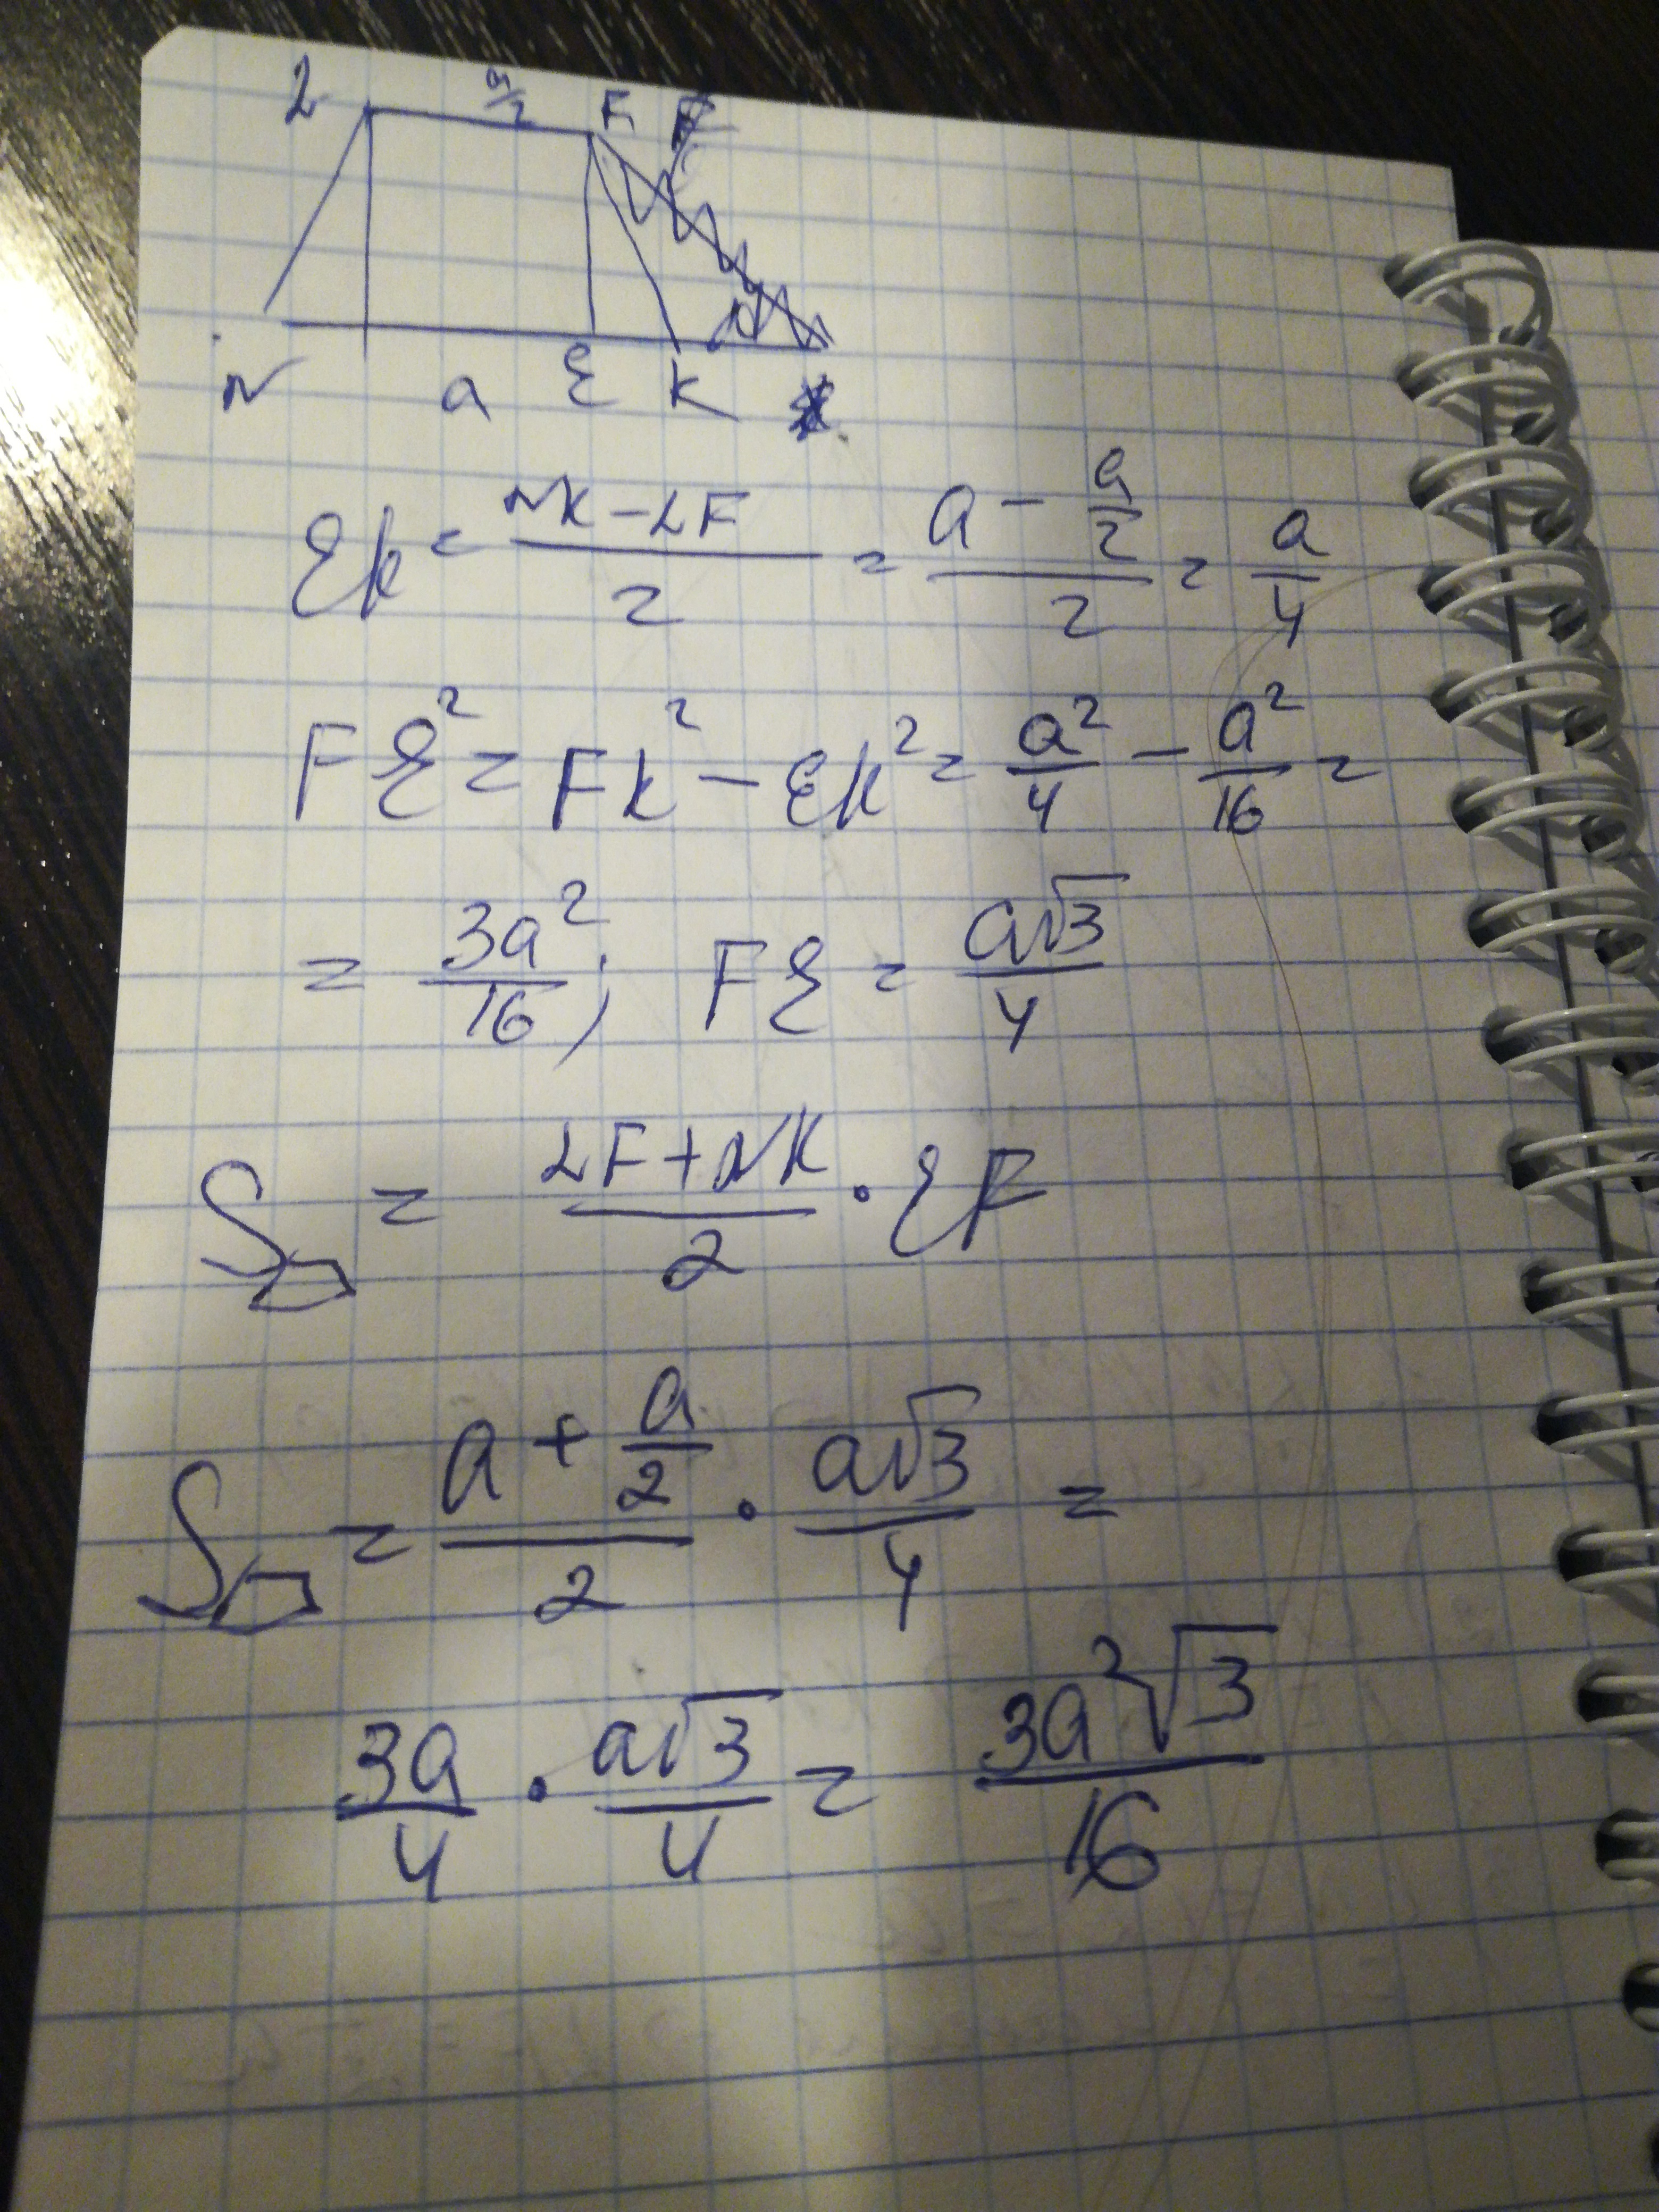 L a/2 F
N a E K
EK = (NK - LF)/2 = (a - a/2)/2 = a/4
FE² = FK² - EK² = a²/4 - a²/16 =
= 3a²/16; FE = a√3/4
S = (LF + NK)/2 · EF
S = (a + a/2)/2 · a√3/4 =
3a/4 · a√3/4 = 3a²√3/16